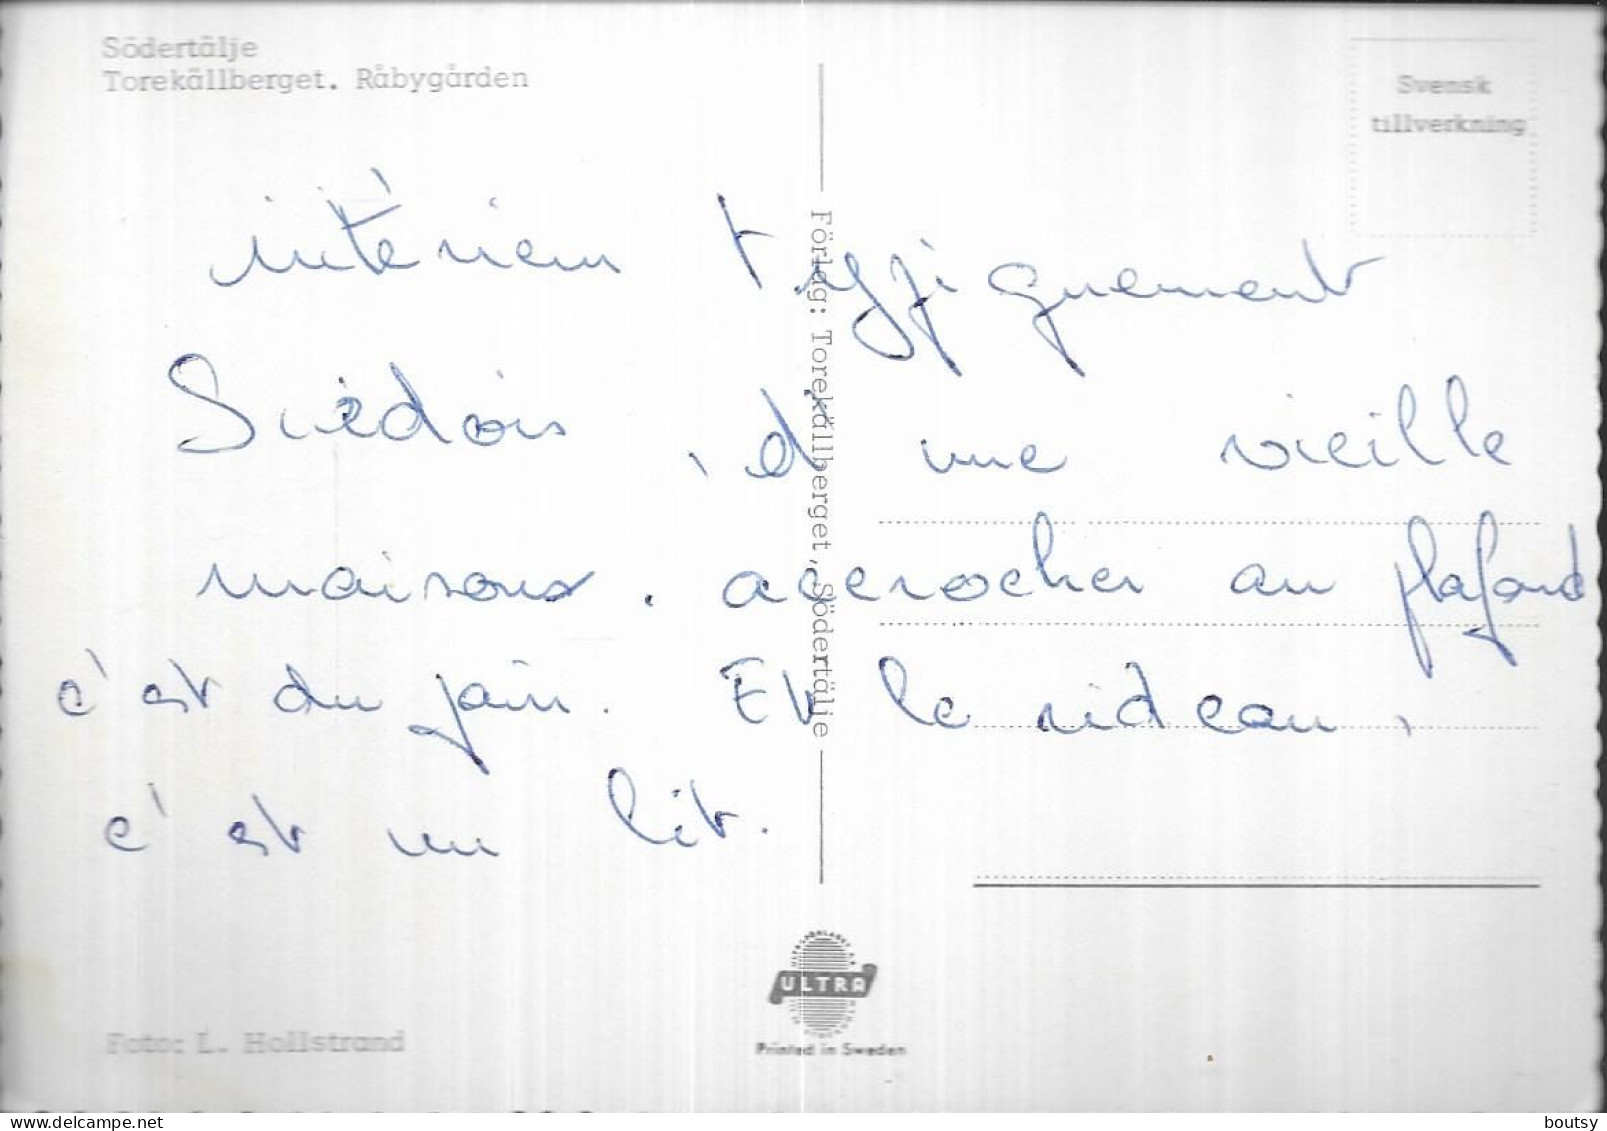 Södertälje
Torekällberget. Råbygården
Svensk
tillverkning
intérieur typiquement
Suèdois, d'une vieille
maisons. accrocher au plafond
c'est du pain. Et le rideau,
c'est un lit.
Förlag: Torekällberget, Södertälje
ULTRA
Printed in Sweden
Foto: L. Hollstrand
boutsy